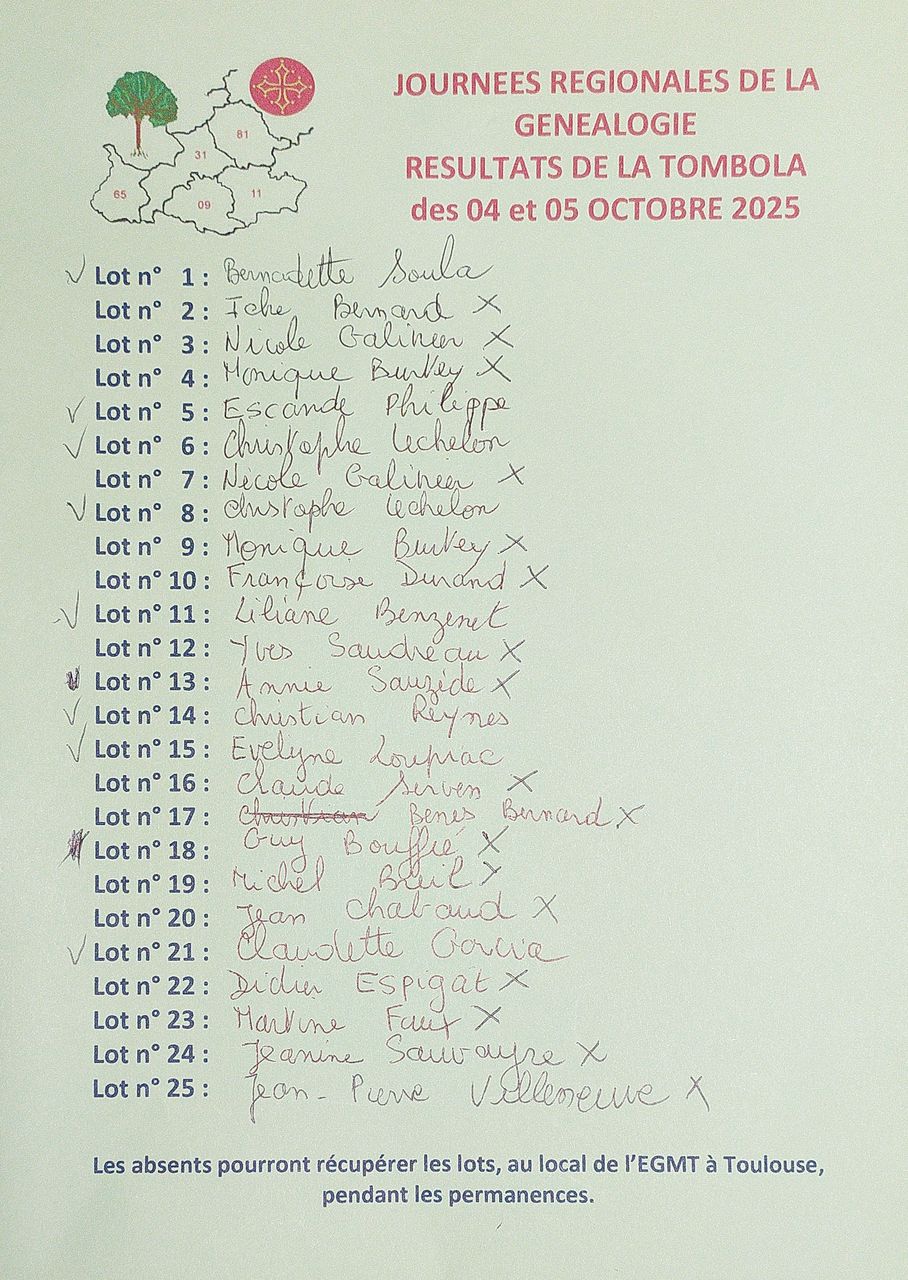 JOURNEES REGIONALES DE LA
GENEALOGIE
RESULTATS DE LA TOMBOLA
des 04 et 05 OCTOBRE 2025
81
31
65
09
11
√ Lot n° 1 : Bernadette Soula
Lot n° 2 : Iche Bernard X
Lot n° 3 : Nicole Galinier X
Lot n° 4 : Monique Burkey X
√ Lot n° 5 : Escande Philippe
√ Lot n° 6 : Christophe Lechelon
Lot n° 7 : Nicole Galinier X
√ Lot n° 8 : Christophe Lechelon
Lot n° 9 : Monique Burkey X
Lot n° 10 : Françoise Durand X
√ Lot n° 11 : Liliane Benzenet
Lot n° 12 : Yves Saudreau X
Lot n° 13 : Annie Sauzède X
√ Lot n° 14 : Christian Reynes
√ Lot n° 15 : Evelyne Loupiac
Lot n° 16 : Claude Serven X
Lot n° 17 : Christian Benes Bernard X
Lot n° 18 : Guy Bouffié X
Lot n° 19 : Michel Breil X
Lot n° 20 : Jean Chabaud X
√ Lot n° 21 : Claudette Garcia
Lot n° 22 : Didier Espigat X
Lot n° 23 : Martine Faux X
Lot n° 24 : Jeanine Sauvayre X
Lot n° 25 : Jean-Pierre Villeneuve X
Les absents pourront récupérer les lots, au local de l'EGMT à Toulouse,
pendant les permanences.